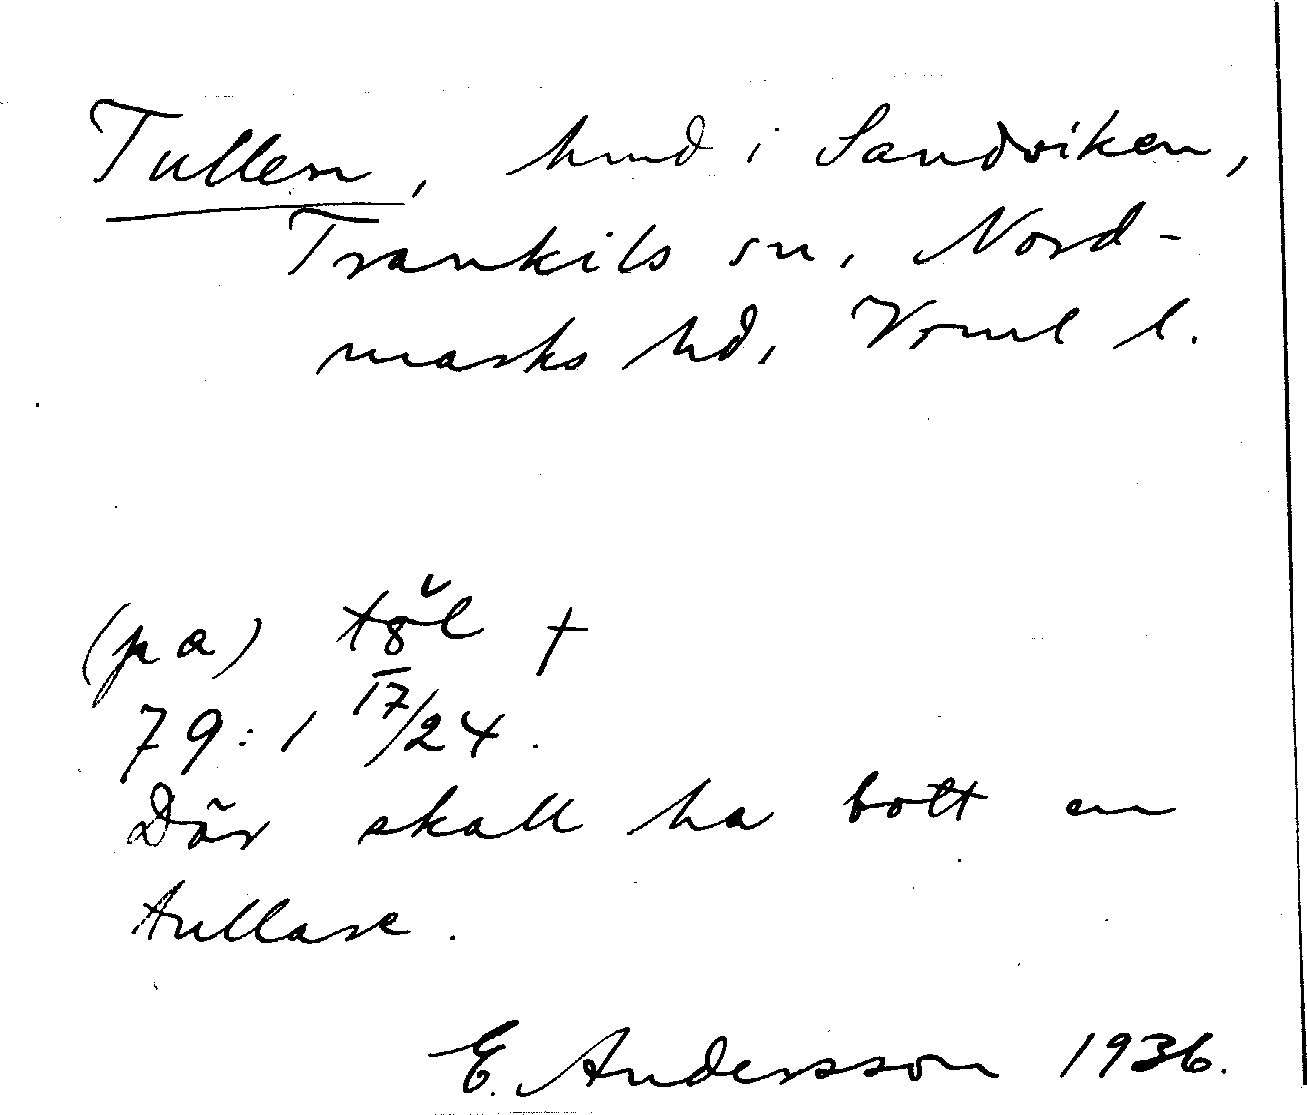 Tullen, hmd i Sandviken,
Trankils sn, Nord-
marks hd, Vrml l.
(pa) +
79:1 IV/24.
Där skall ha bott en
tullare.
E. Andersson 1936.